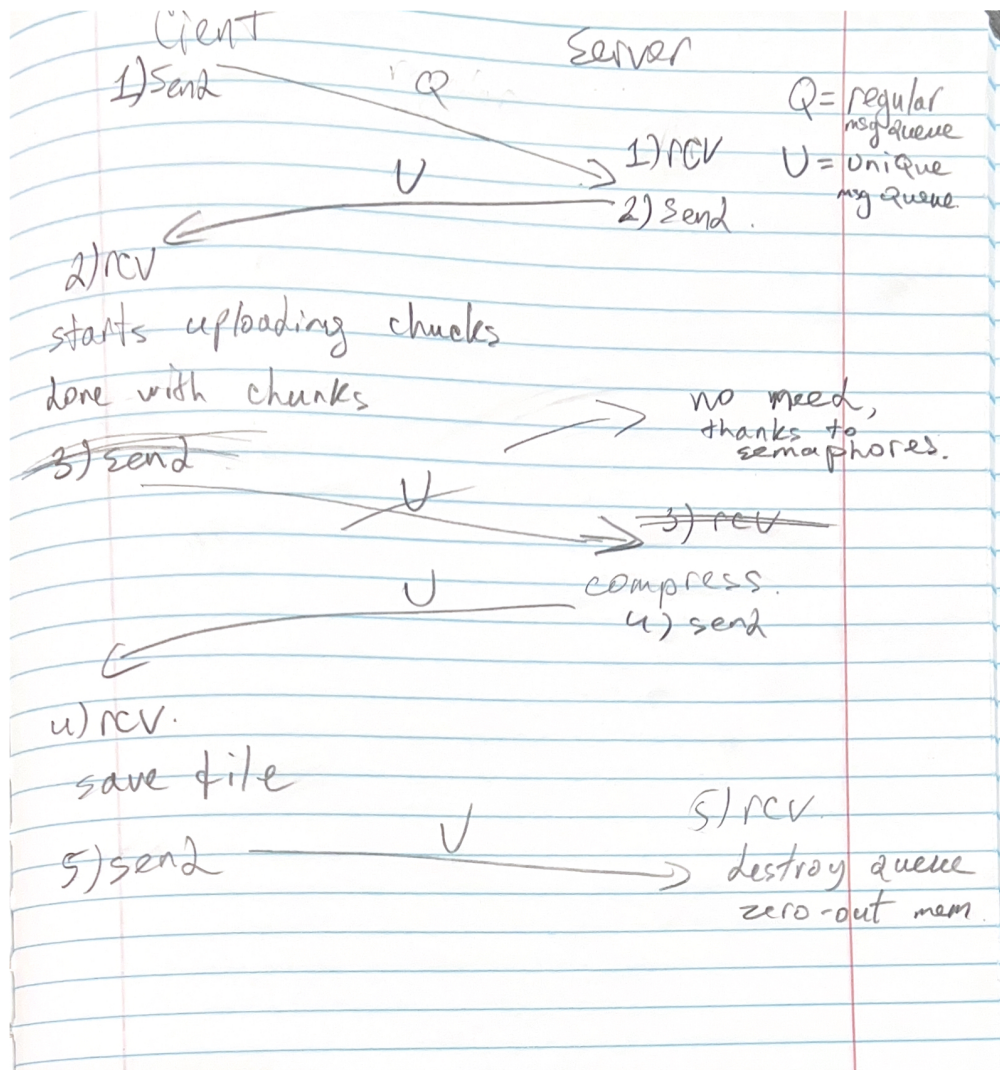 Client
Server
1) Send
Q
Q = regular
msg queue
1) rcv
U = Unique
msg Queue.
U
2) Send.
2) rcv
starts uploading chucks
done with chunks
no need,
thanks to
semaphores.
3) send
U
3) rcv
compress.
U
4) send
4) rcv.
save file
5) rcv.
U
5) send
destroy queue
zero-out mem.